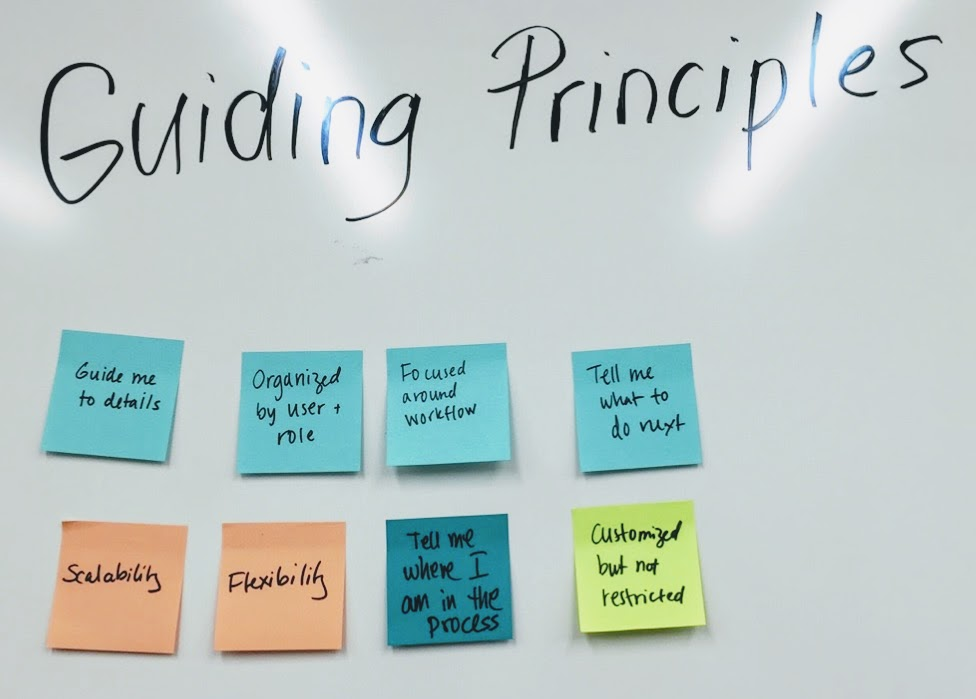 Guiding Principles
Guide me
to details
Organized
by user +
role
Focused
around
workflow
Tell me
what to
do next
Scalability
Flexibility
Tell me
where I
am in the
process
Customized
but not
restricted